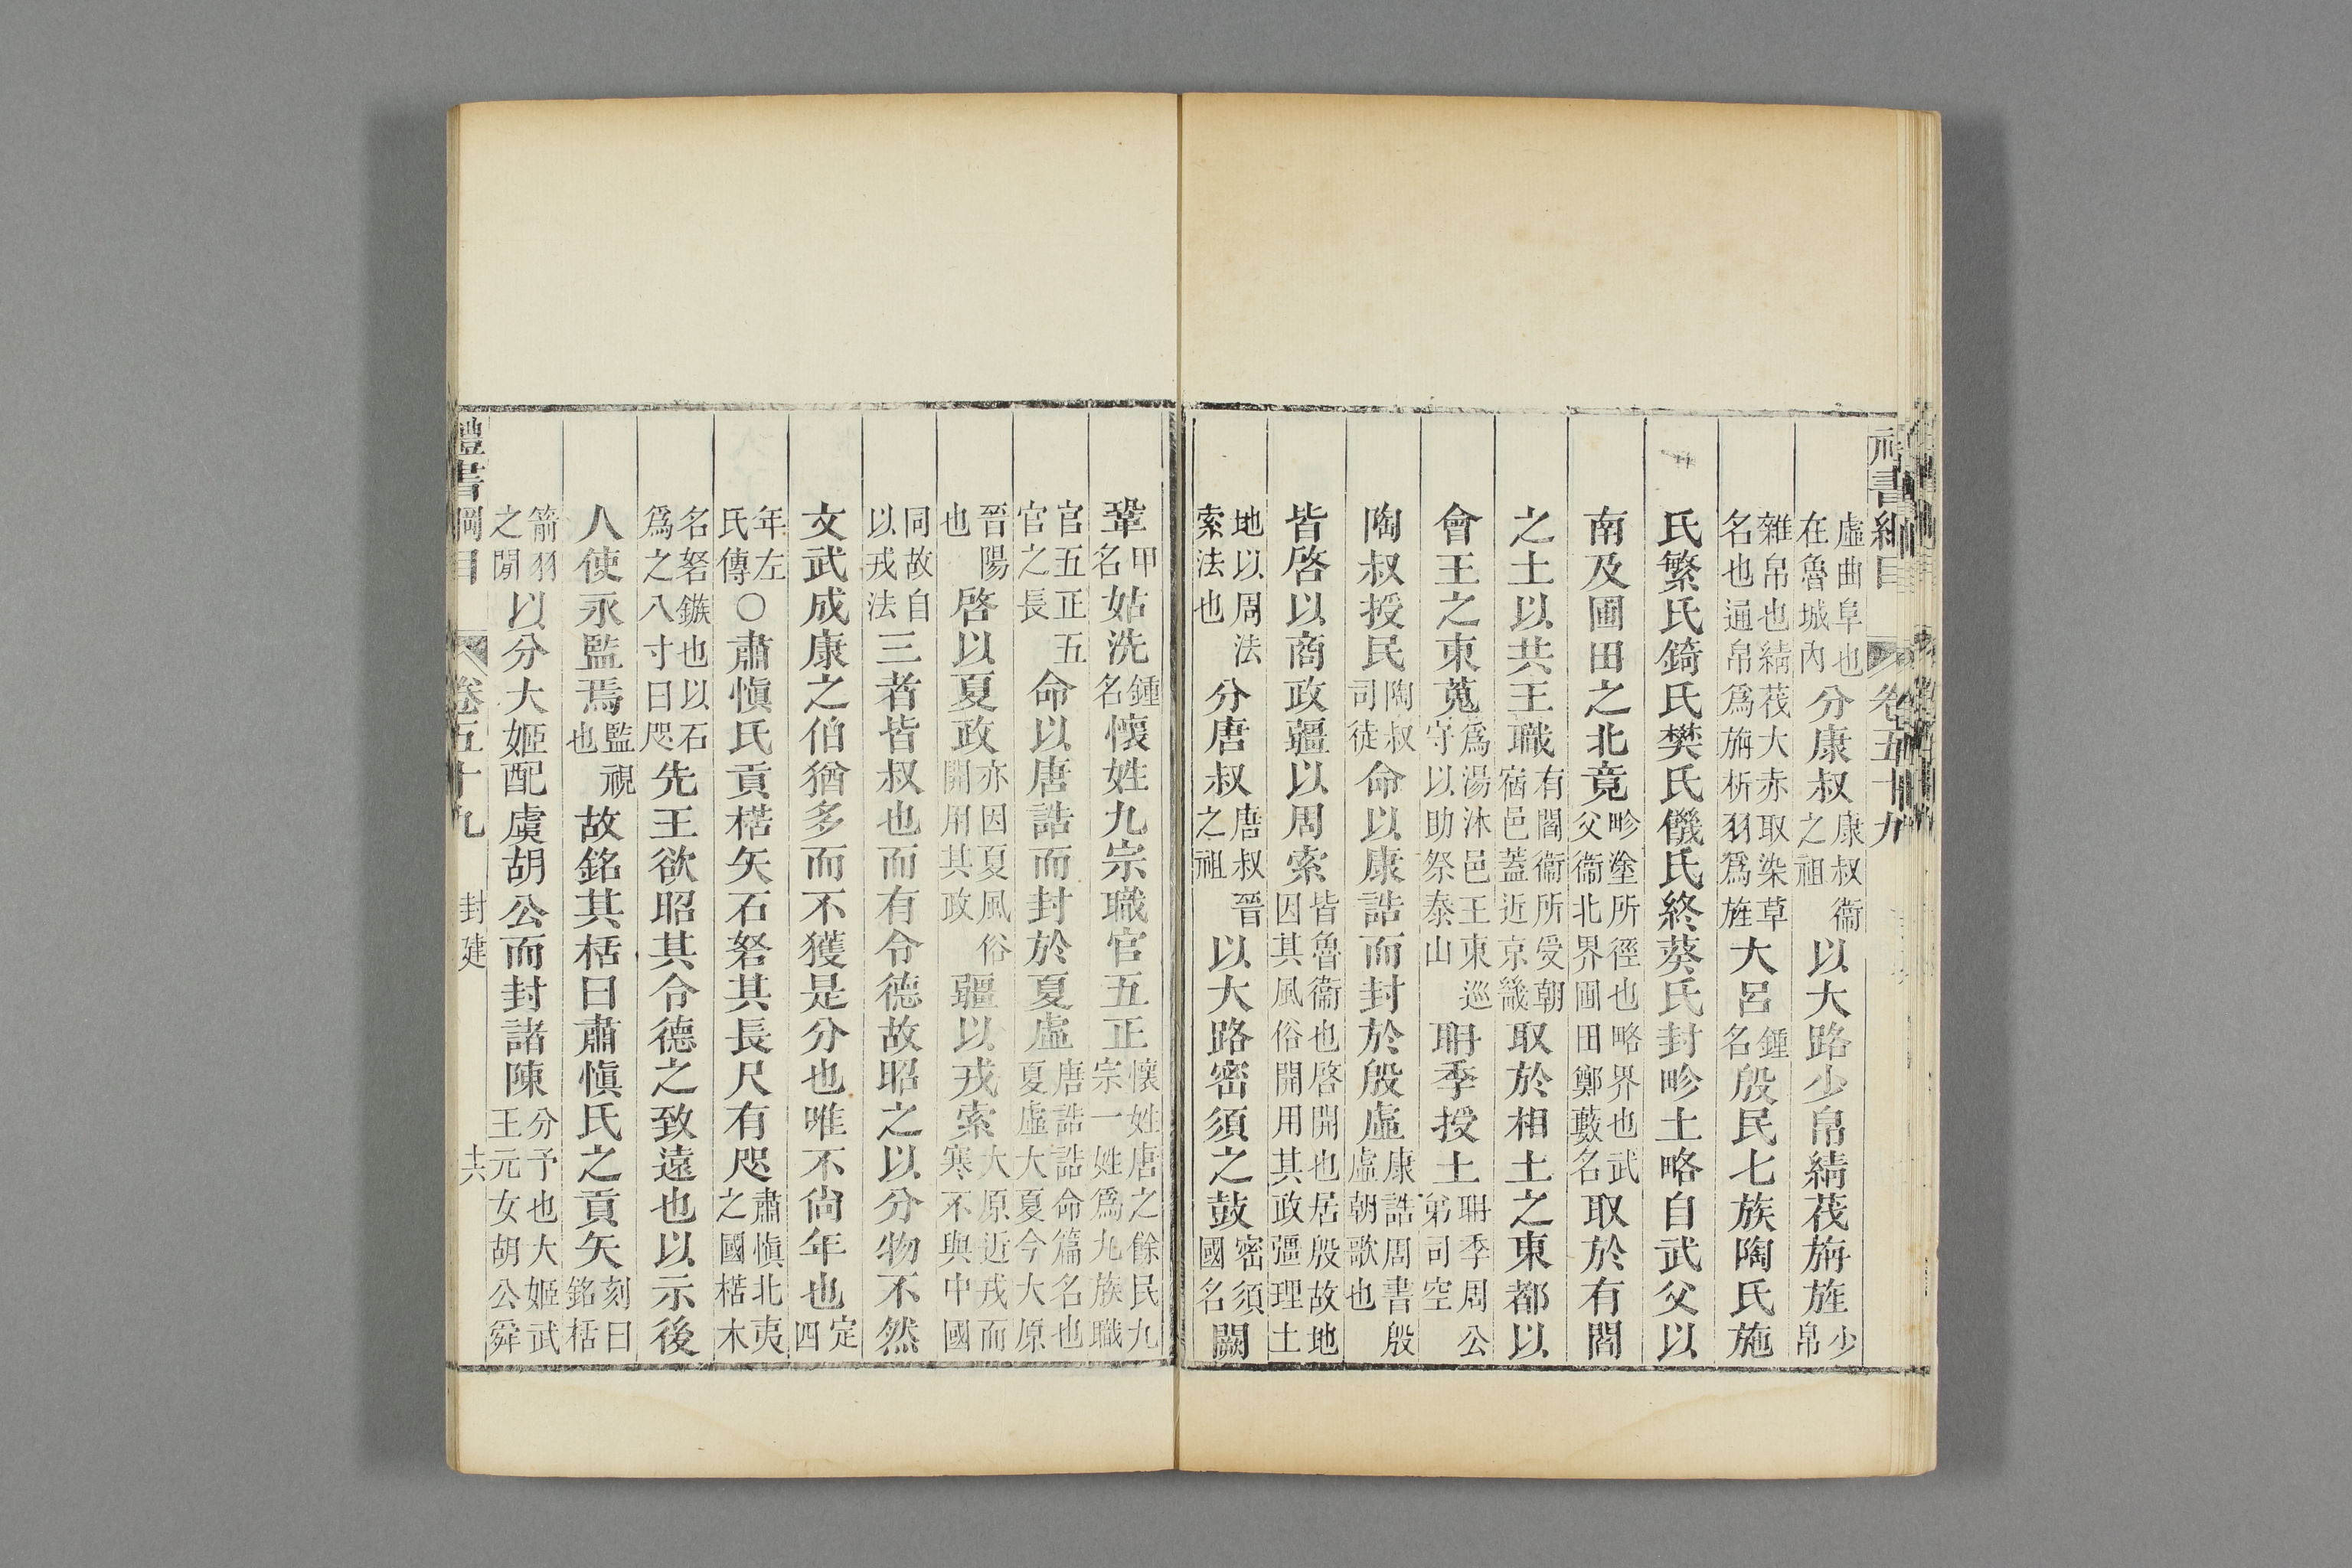 虛曲阜也在魯城內分康叔康叔衞之祖以大路少帛綪茷旃旌少帛
雜帛也綪茷大赤取染草名也通帛爲旃析羽爲旌大呂鍾名殷民七族陶氏施
氏繁氏錡氏樊氏饑氏終葵氏封畛土略自武父以
南及圃田之北竟畛塗所徑也略界也武父衞北界圃田鄭藪名取於有閻
之土以共王職有閻衞所受朝宿邑蓋近京畿取於相土之東都以
會王之東蒐爲湯沐邑王東巡守以助祭泰山聃季授土聃季周公弟司空
陶叔授民陶叔司徒命以康誥而封於殷虛康誥周書殷虛朝歌也
皆啓以商政疆以周索皆魯衞也啓開也居殷故地因其風俗開用其政疆理土
地以周法索法也分唐叔唐叔晉之祖以大路密須之鼓密須國名闕
鞏甲名姑洗鍾名懷姓九宗職官五正懷姓唐之餘民九宗一姓爲九族職
官五正五官之長命以唐誥而封於夏虛唐誥誥命篇名也夏虛大夏今大原
晉陽也啓以夏政亦因夏風俗開用其政疆以戎索大原近戎而寒不與中國
同故自以戎法三者皆叔也而有令德故昭之以分物不然
文武成康之伯猶多而不獲是分也唯不尙年也定四
年左氏傳○肅愼氏貢楛矢石砮其長尺有咫肅愼北夷之國楛木
名砮鏃也以石爲之八寸曰咫先王欲昭其令德之致遠也以示後
人使永監焉監視也故銘其栝曰肅愼氏之貢矢刻曰銘栝
箭羽之閒以分大姬配虞胡公而封諸陳分予也大姬武王元女胡公舜
禮書綱目 卷五十九 封建 十六